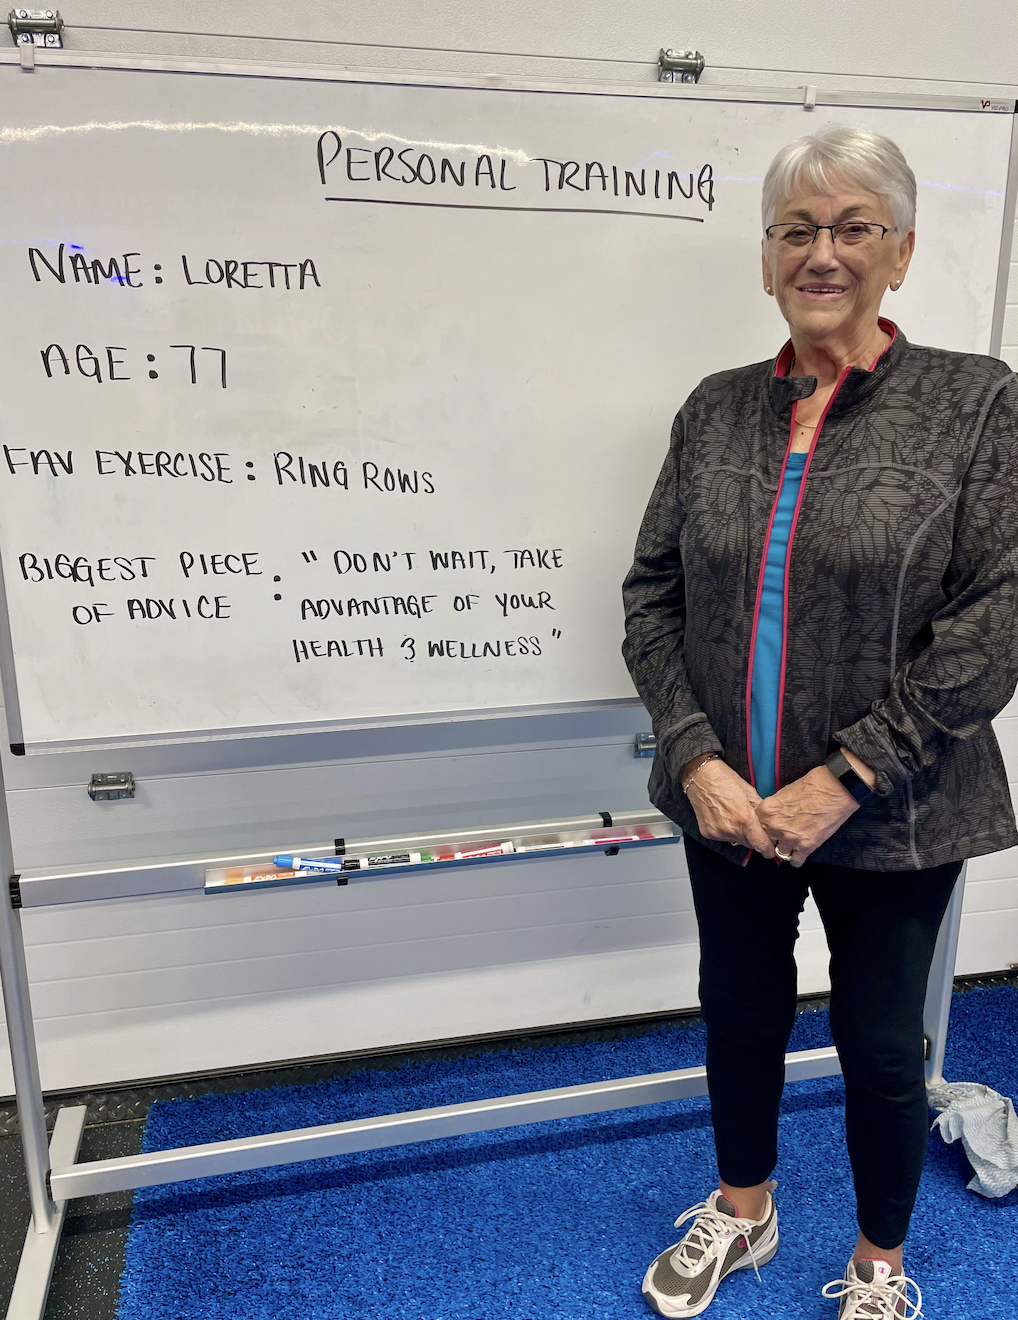 PERSONAL TRAINING
NAME: LORETTA
AGE: 77
FAV EXERCISE: RING ROWS
BIGGEST PIECE OF ADVICE : "DON'T WAIT, TAKE
ADVANTAGE OF YOUR
HEALTH & WELLNESS"
VIZ-PRO
EXPO